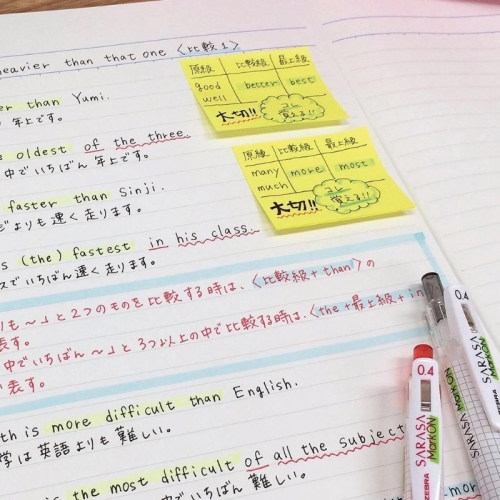 heavier than that one 〈比較1〉
er than Yumi.
年上です。
e oldest of the three.
中でいちばん 年上です。
faster than Sinji.
じよりも速く走ります。
s (the) fastest in his class.
スでいちばん速く走ります。
りも〜」と2つのものを比較する時は、〈比較級+than〉の
表す。
中でいちばん〜」と3つ以上の中で比較する時は、〈the+最上級+in
い表す。
th is more difficult than English.
学は英語よりも難しい。
is the most difficult of all the subject
中でいちばん難しい。
原級 比較級 最上級
good
well better best
大切!! コレ
覚える!!
原級 比較級 最上級
many
much more most
大切!! コレ
覚える!!
0.4
SARASA
MarkON
ZEBRA
0.4
SARASA
MarkON